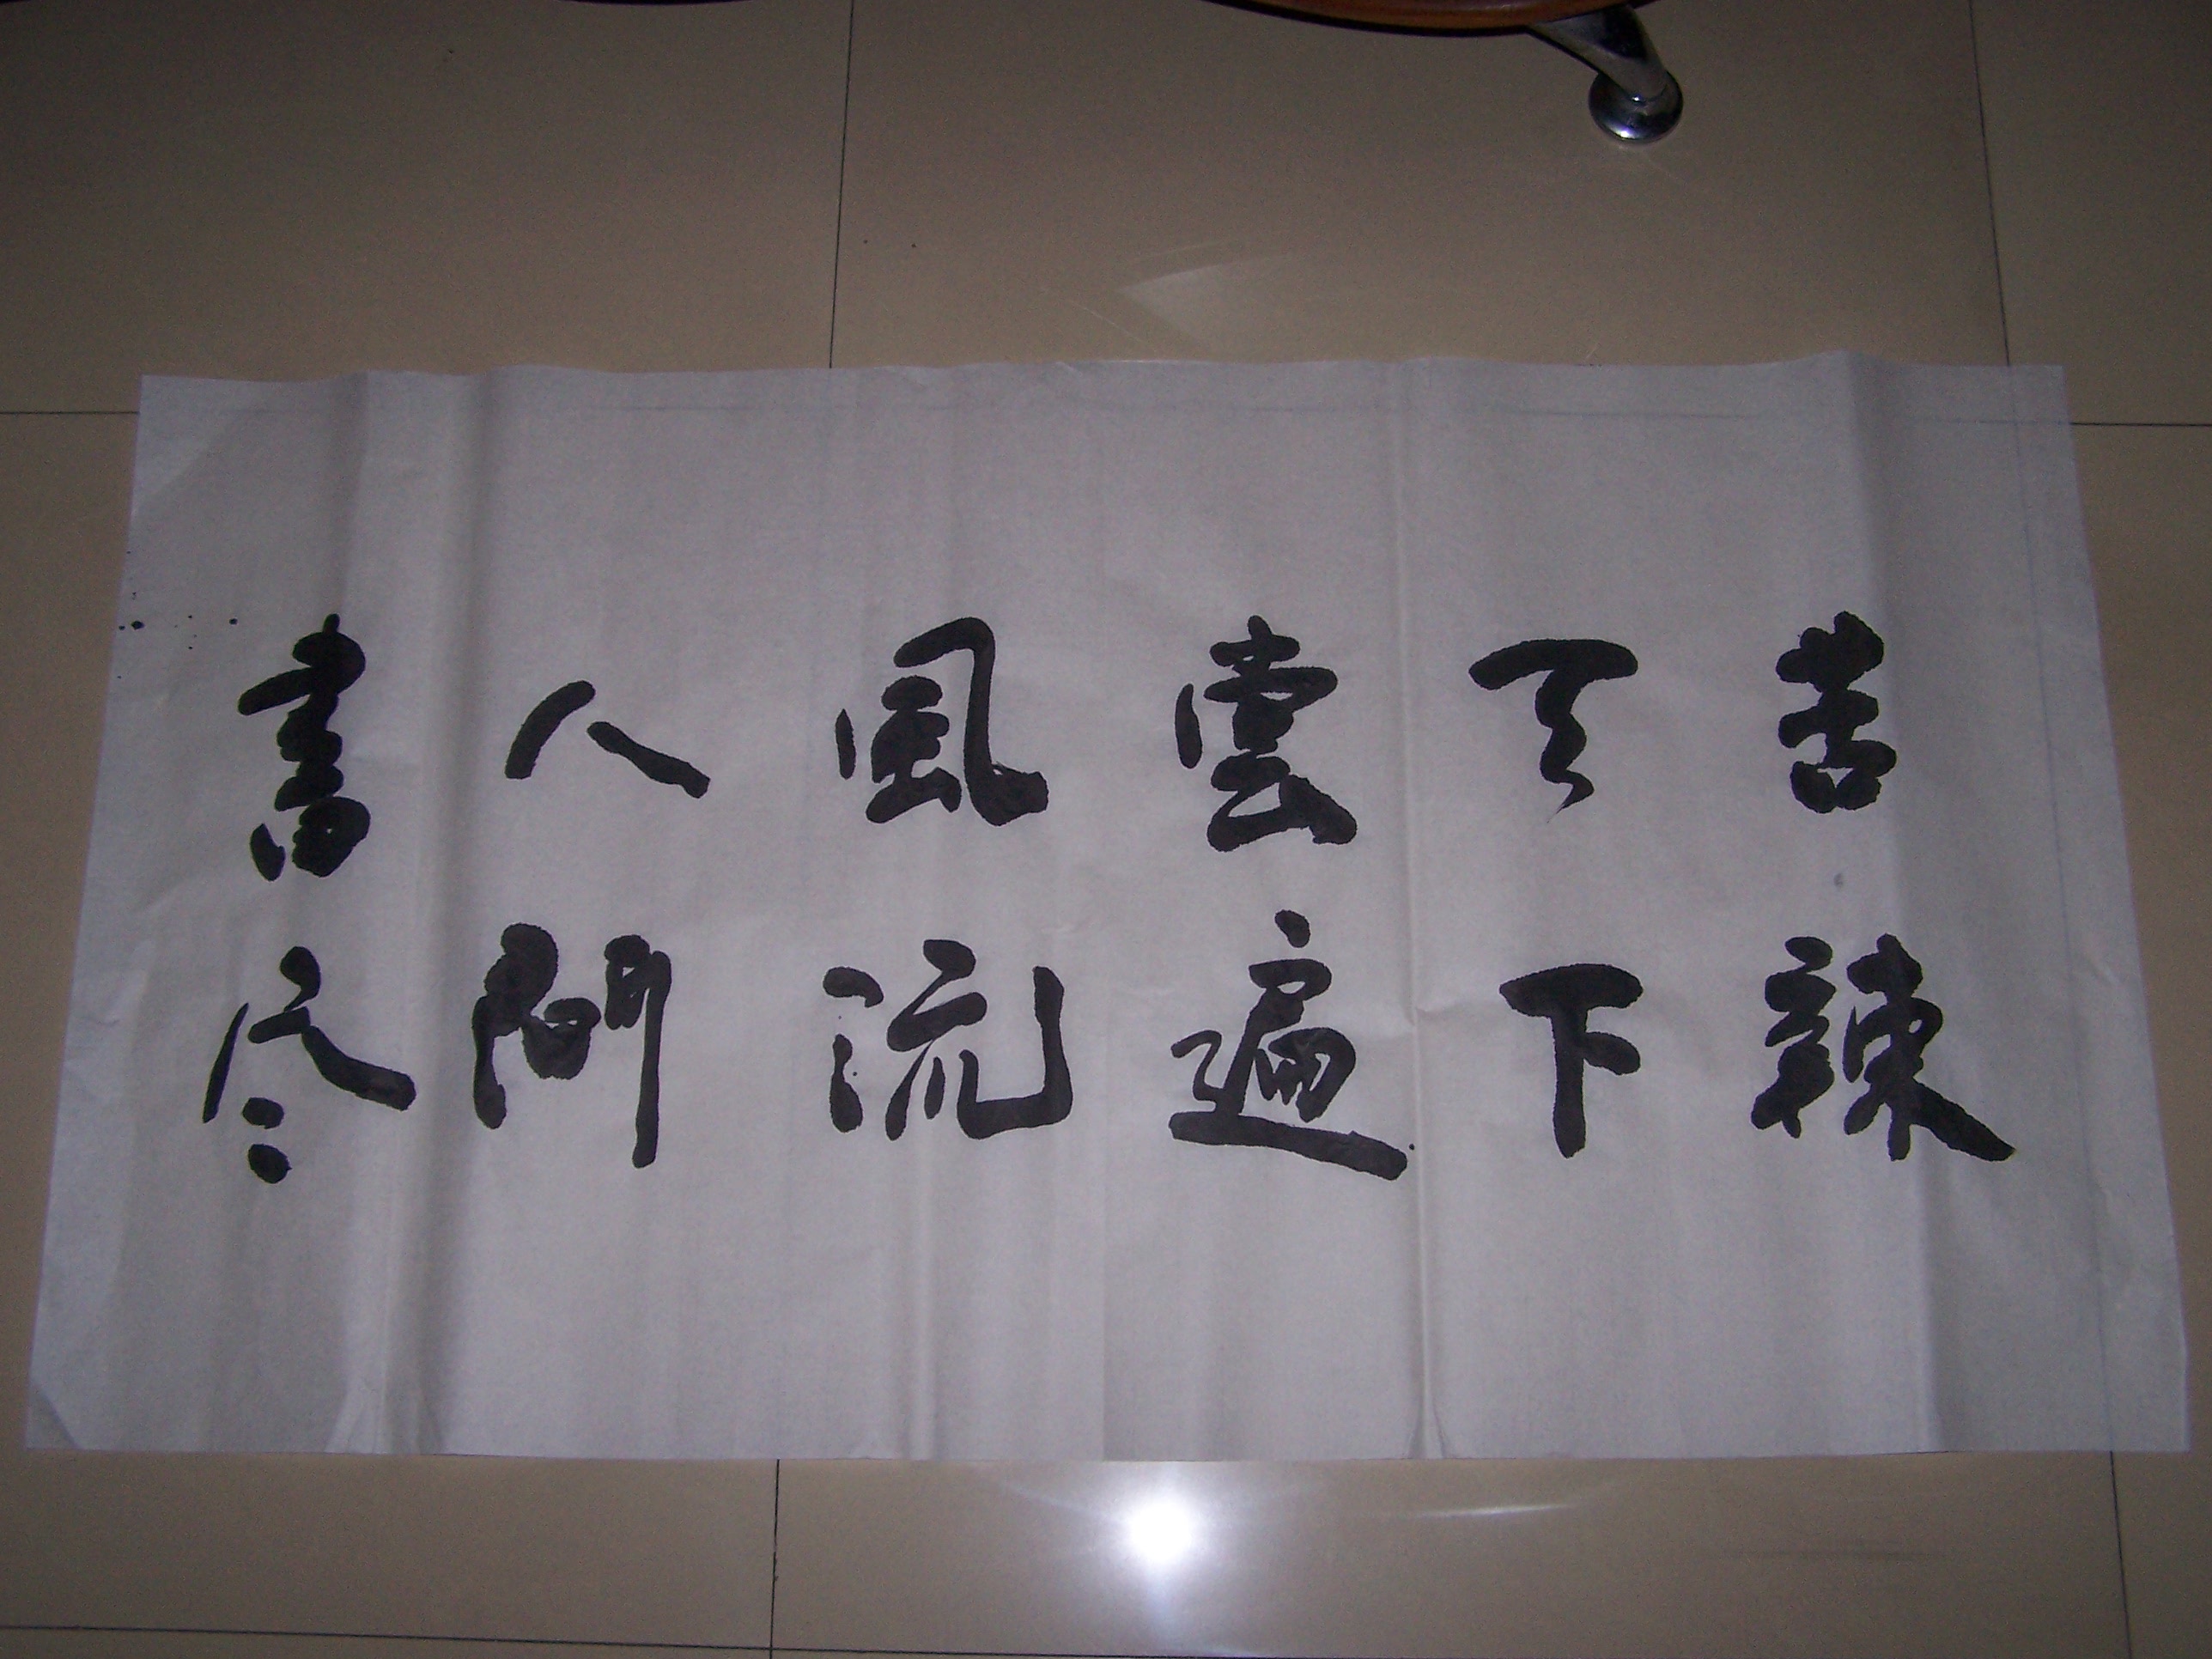 苦辣
天下
尝遍
風流
人間
書尽